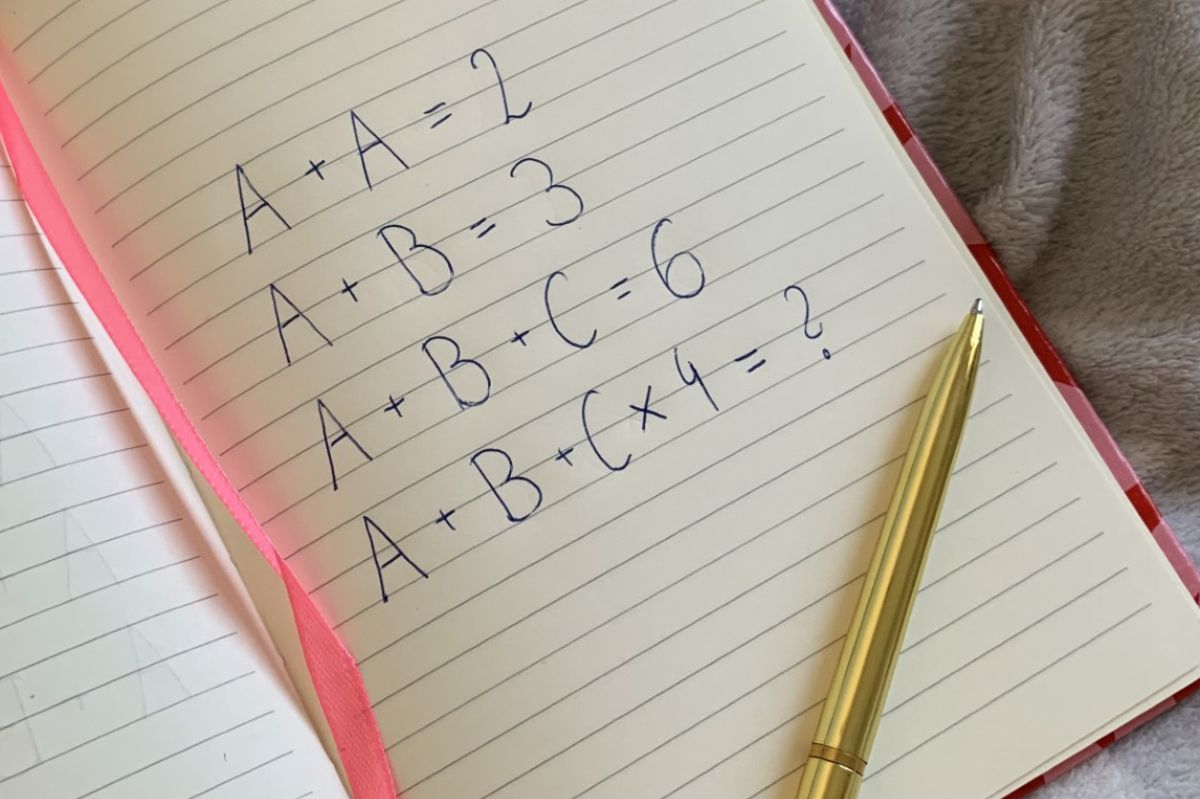 A + A = 2
A + B = 3
A + B + C = 6
A + B + C × 4 = ?